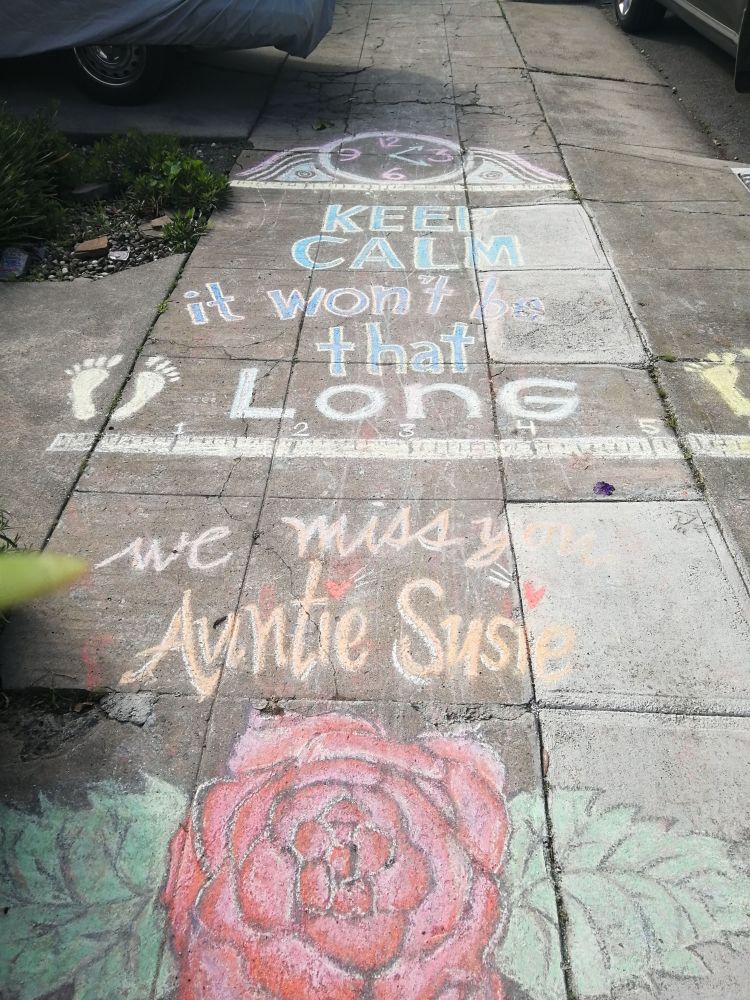 12
9 3
6
KEEP
CALM
it won't be
that
LonG
1 2 3 4 5
we miss you
Auntie Susie